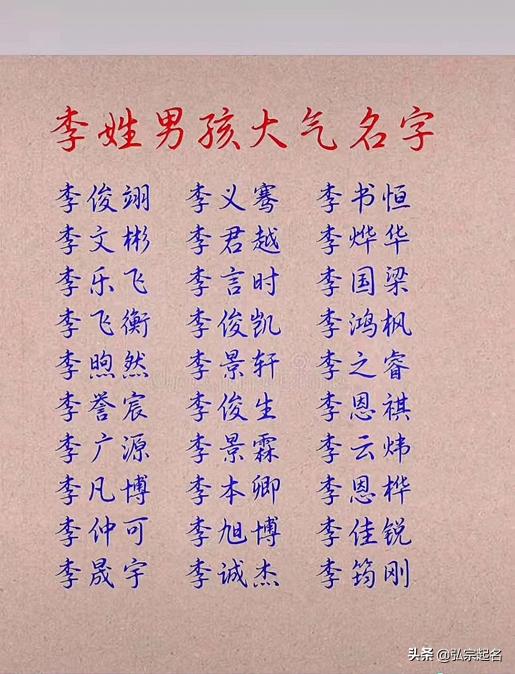 李姓男孩大气名字
李俊翊 李义骞 李书恒
李文彬 李君越 李烨华
李乐飞 李言时 李国梁
李飞衡 李俊凯 李鸿枫
李煦然 李景轩 李之睿
李誉宸 李俊生 李恩祺
李广源 李景霖 李云炜
李凡博 李本卿 李恩桦
李仲可 李旭博 李佳锐
李晟宇 李诚杰 李筠刚
头条 @弘宗起名